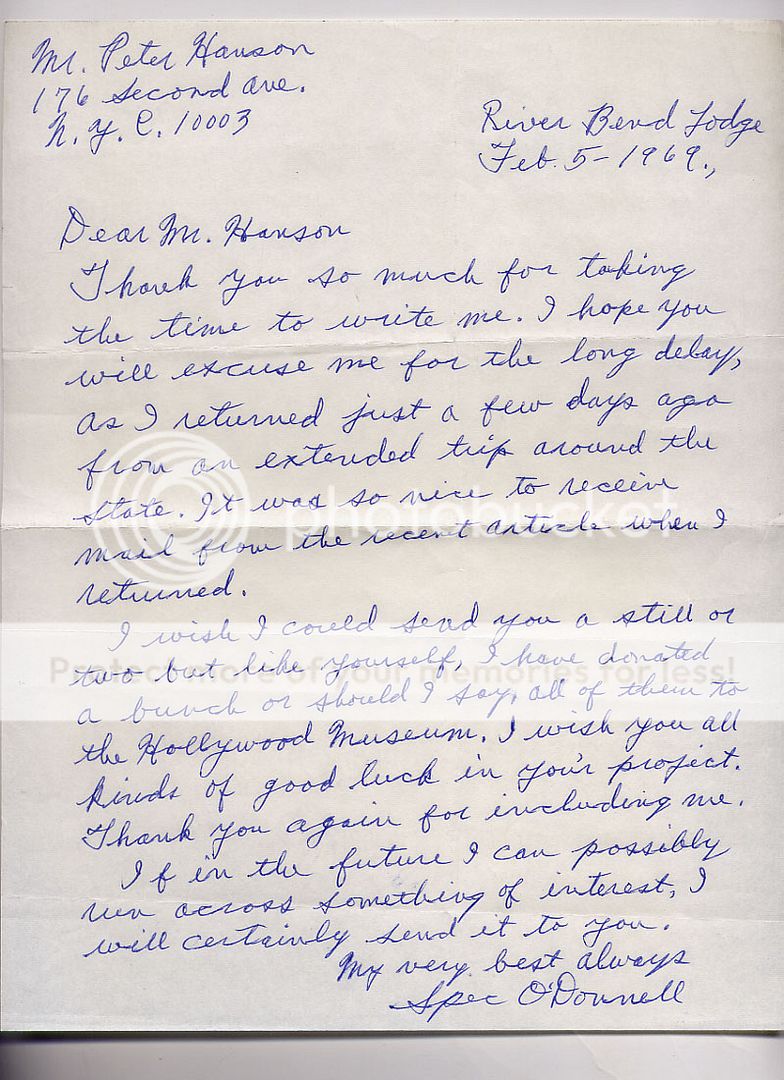 Mr. Peter Hanson
176 Second Ave.
N.Y.C. 10003
River Bend Lodge
Feb. 5-1969.,
Dear Mr. Hanson
Thank you so much for taking
the time to write me. I hope you
will excuse me for the long delay,
as I returned just a few days ago
from an extended trip around the
state. It was so nice to receive
mail from the recent article when I
returned.
I wish I could send you a still or
two but like yourself, I have donated
a bunch or should I say, all of them to
the Hollywood Museum. I wish you all
kinds of good luck in your project.
Thank you again for including me.
If in the future I can possibly
run across something of interest, I
will certainly send it to you.
My very best always
Spec O'Donnell
photobucket
Protect more of your memories for less!